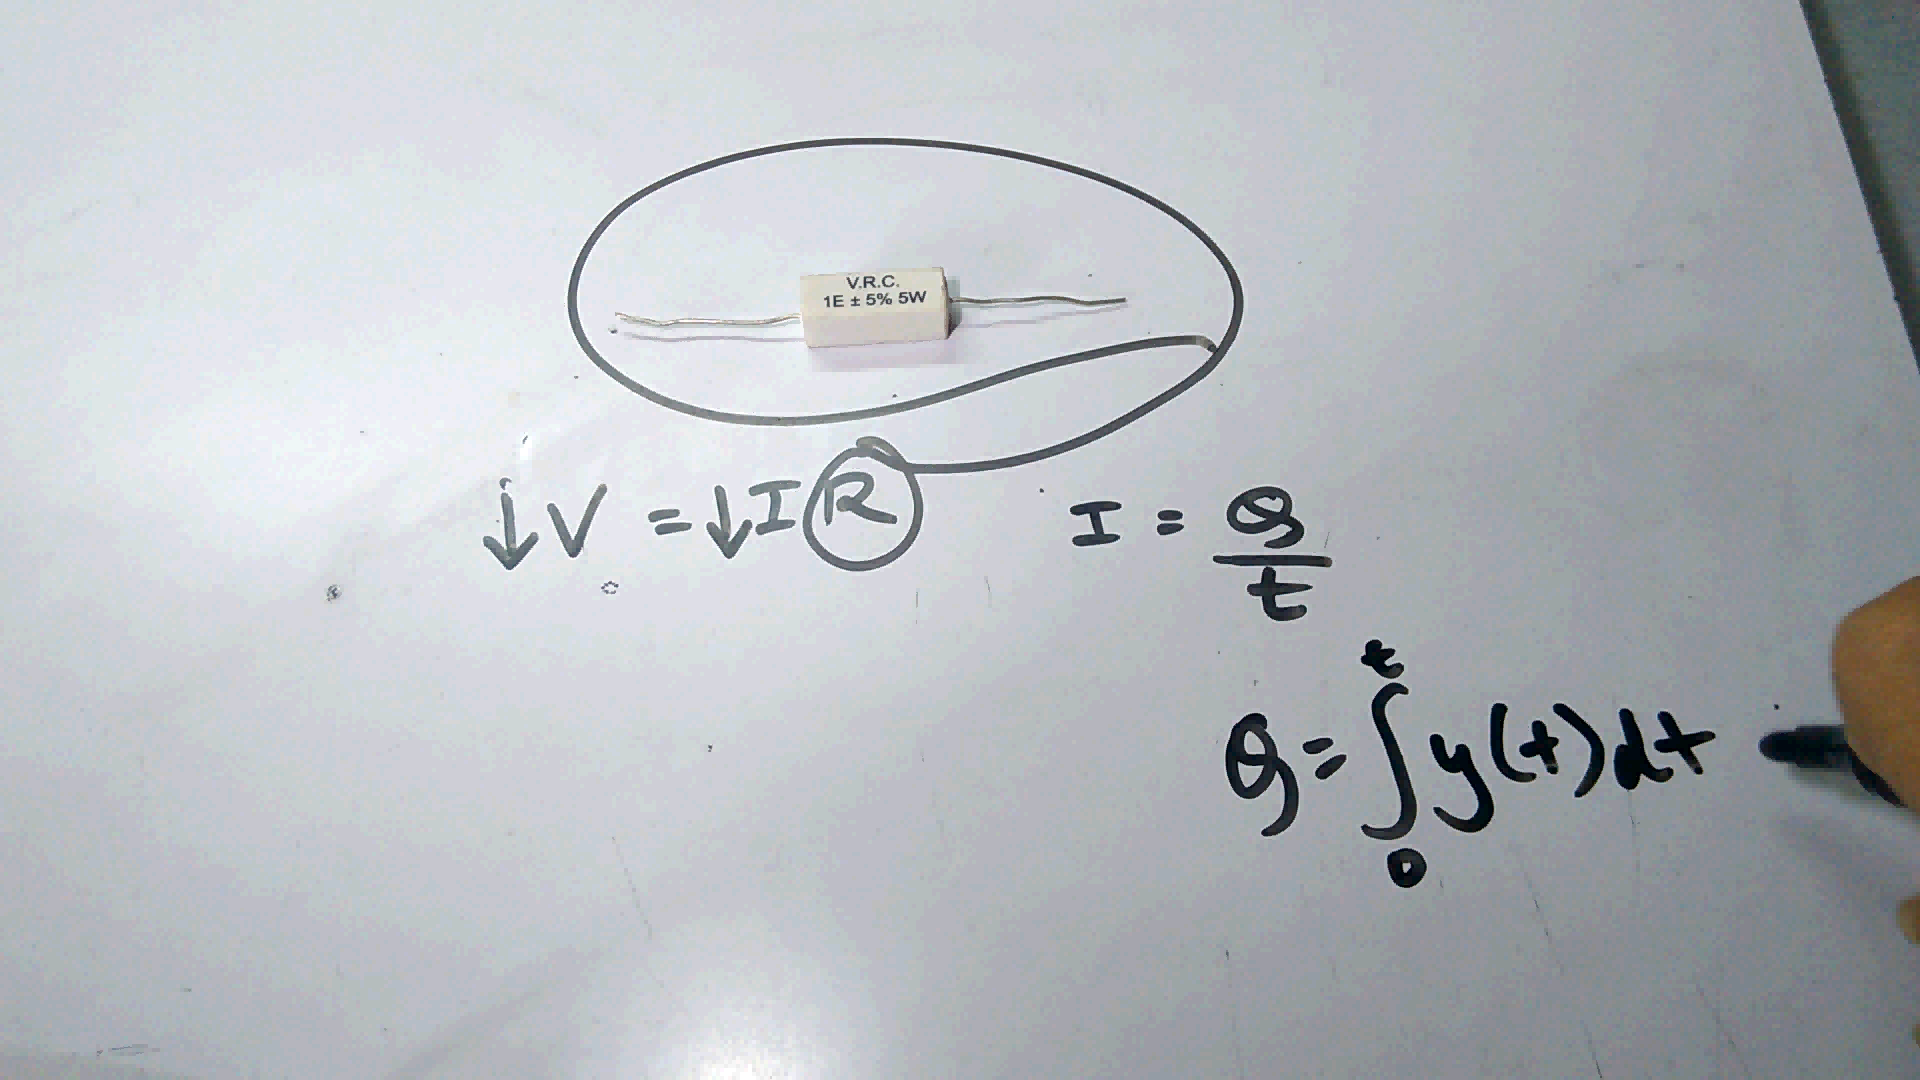 V.R.C.
1E ± 5% 5W
↓V = ↓IR
I = Q/t
Q = ∫₀ᵗ y(t)dt